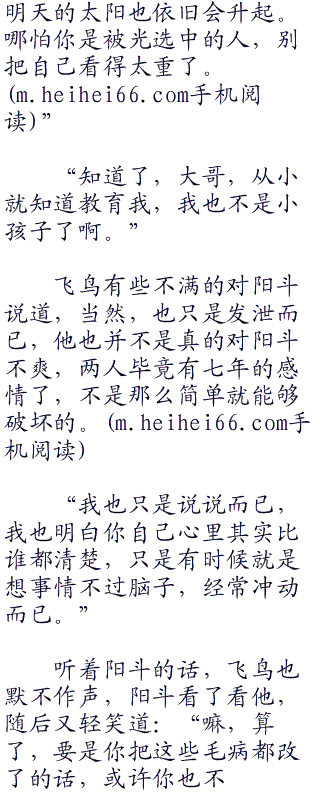 明天的太阳也依旧会升起。
哪怕你是被光选中的人，别
把自己看得太重了。
(m.heihei66.com手机阅
读)”
“知道了，大哥，从小
就知道教育我，我也不是小
孩子了啊。”
飞鸟有些不满的对阳斗
说道，当然，也只是发泄而
已，他也并不是真的对阳斗
不爽，两人毕竟有七年的感
情了，不是那么简单就能够
破坏的。(m.heihei66.com手
机阅读)
“我也只是说说而已，
我也明白你自己心里其实比
谁都清楚，只是有时候就是
想事情不过脑子，经常冲动
而已。”
听着阳斗的话，飞鸟也
默不作声，阳斗看了看他，
随后又轻笑道：“嘛，算
了，要是你把这些毛病都改
了的话，或许你也不